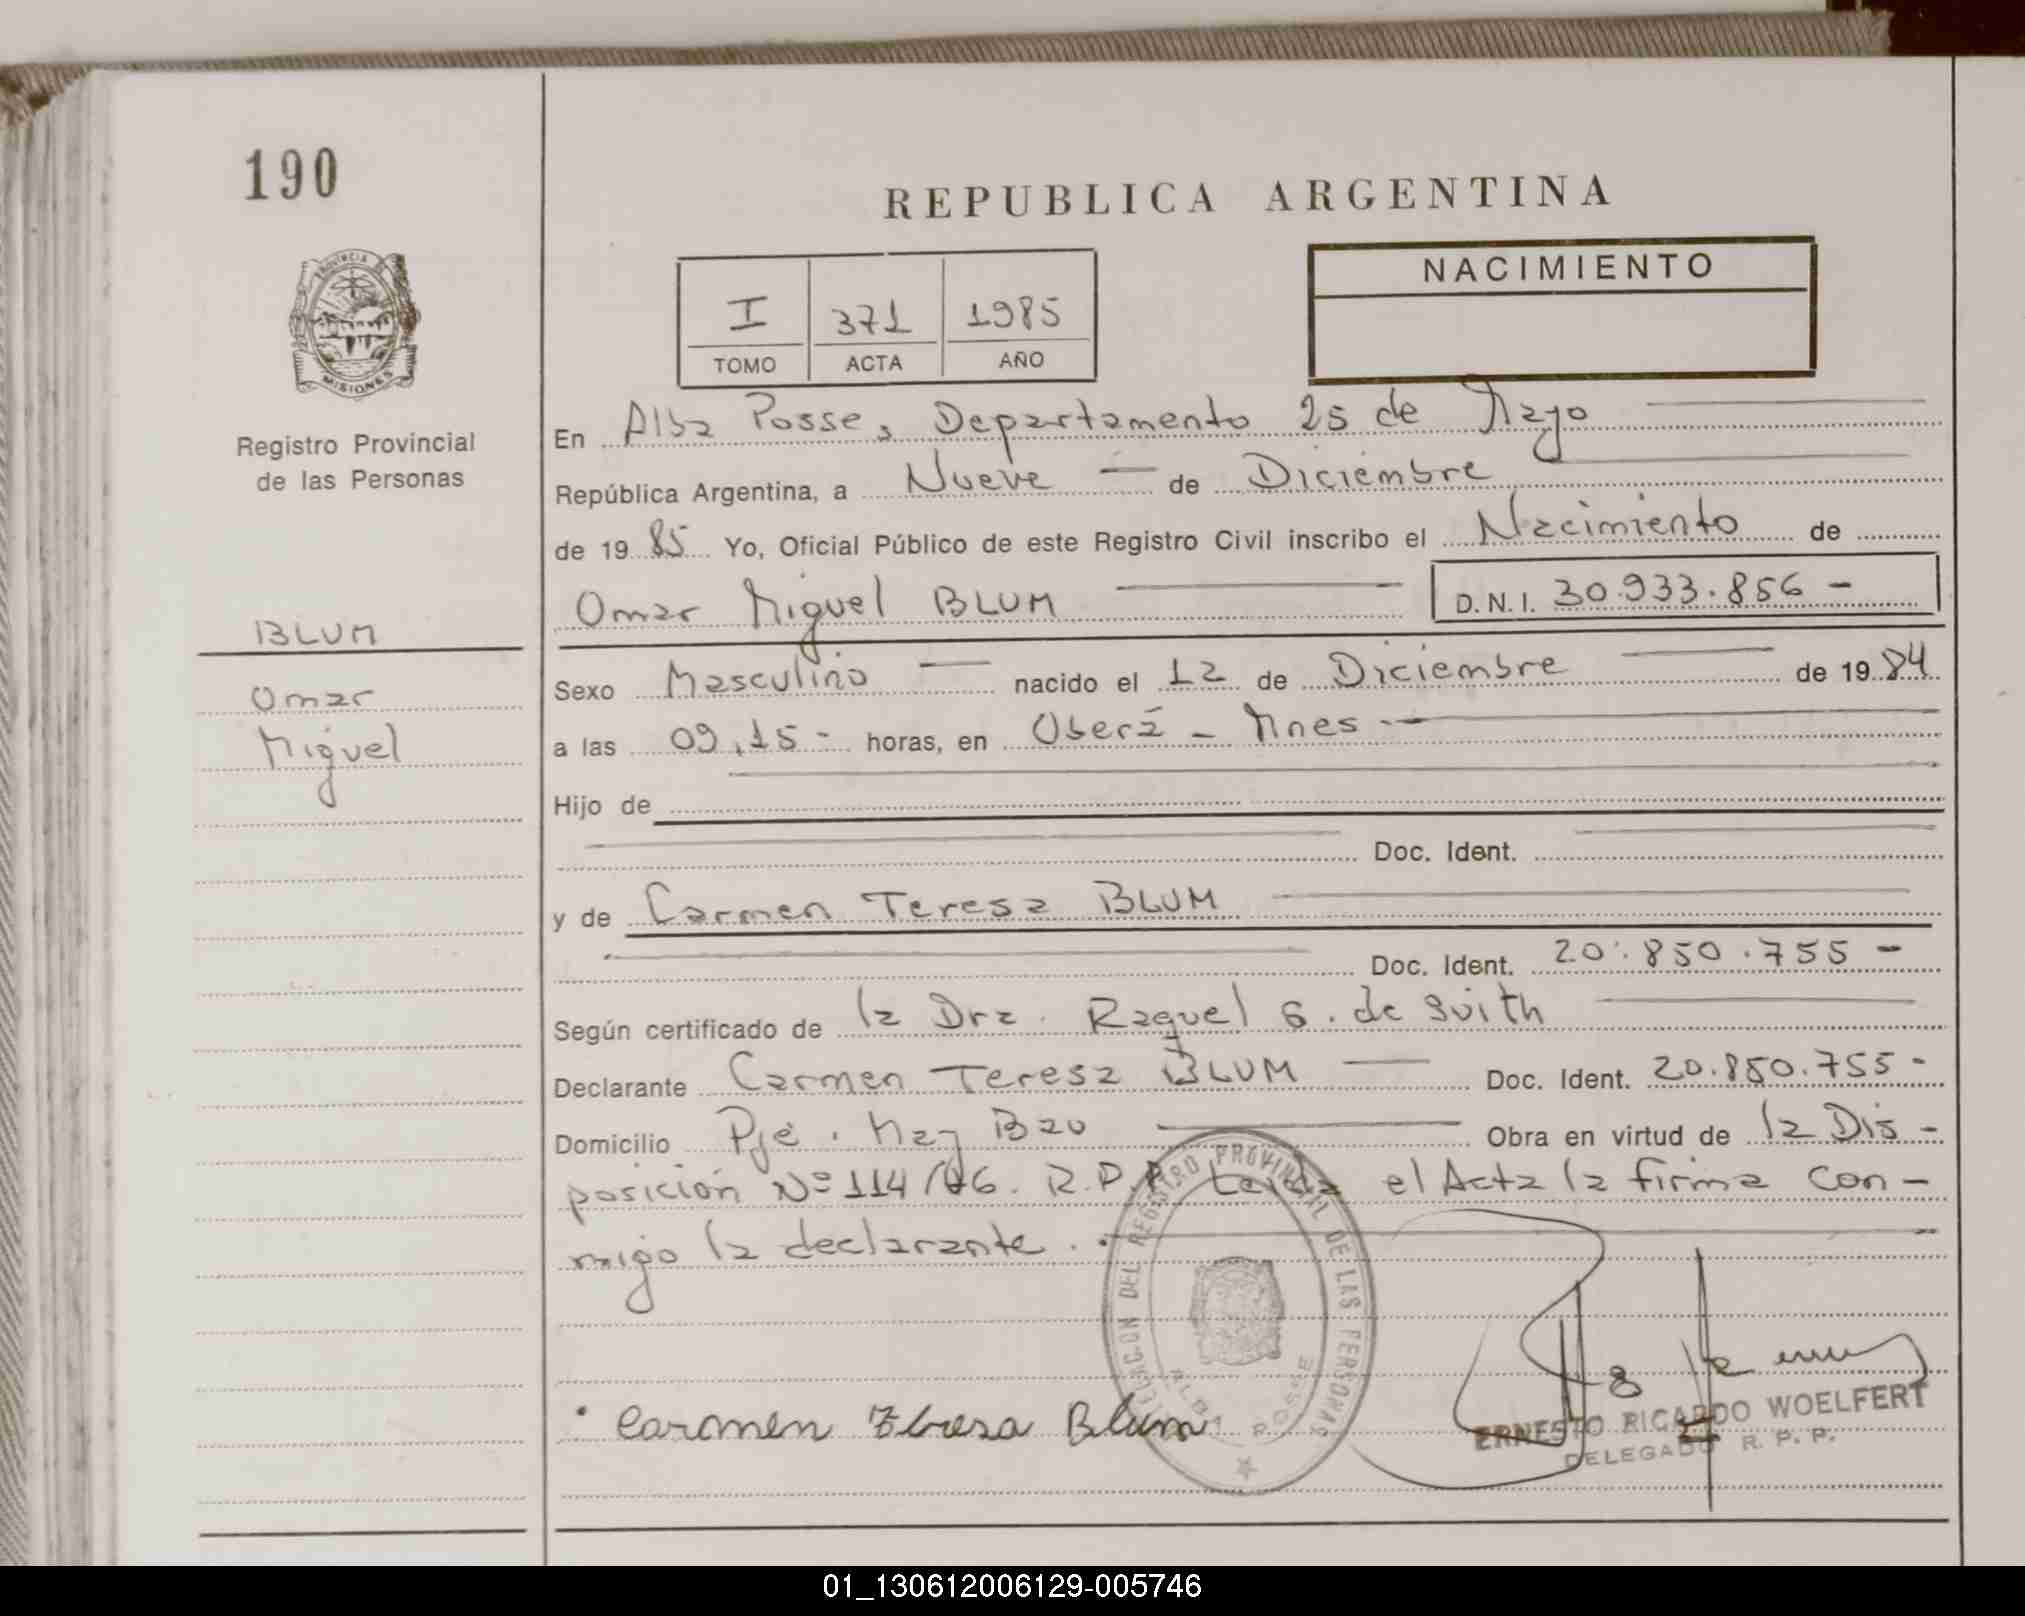 190
REPUBLICA ARGENTINA
PROVINCIA DE
MISIONES
Registro Provincial
de las Personas
I 371 1985
TOMO ACTA AÑO
NACIMIENTO
En Alba Posse, Departamento 25 de Mayo
República Argentina, a Nueve de Diciembre
de 19 85 Yo, Oficial Público de este Registro Civil inscribo el Nacimiento de
Omar Miguel BLUM D.N.I. 30.933.856 -
BLUM
Omar
Miguel
Sexo Masculino nacido el 12 de Diciembre de 19 84
a las 09,15 - horas, en Oberá - Mnes -
Hijo de
Doc. Ident.
y de Carmen Teresa BLUM
Doc. Ident. 20.850.755 -
Según certificado de la Dra. Raquel G. de
Declarante Carmen Teresa BLUM Doc. Ident. 20.850.755 -
Domicilio Pje. Obra en virtud de la Dis -
posición Nº 114/ R.P.P. Leída el Acta la firma con -
migo la declarante.
DELEGACION DEL REGISTRO PROVINCIAL DE LAS PERSONAS
ALBA POSSE
Carmen Teresa Blum
ERNESTO RICARDO WOELFERT
DELEGADO R. P. P.
01_130612006129-005746